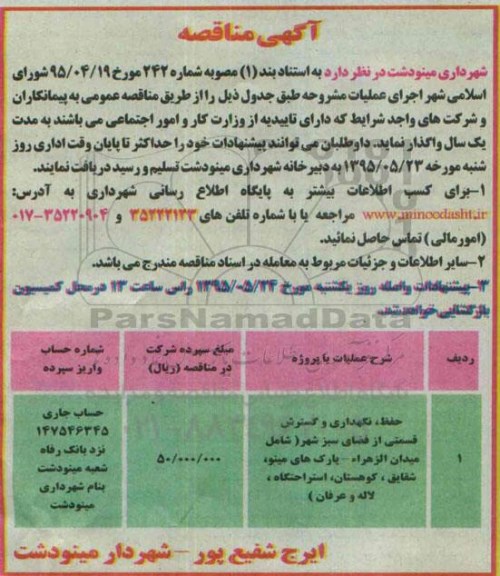 آگهی مناقصه
شهرداری مینودشت در نظر دارد به استناد بند (۱) مصوبه شماره ۲۴۲ مورخ ۹۵/۰۴/۱۹ شورای
اسلامی شهر اجرای عملیات مشروحه طبق جدول ذیل را از طریق مناقصه عمومی به پیمانکاران
و شرکت های واجد شرایط که دارای تاییدیه از وزارت کار و امور اجتماعی می باشند به مدت
یک سال واگذار نماید. داوطلبان می توانند پیشنهادات خود را حداکثر تا پایان وقت اداری روز
شنبه مورخه ۱۳۹۵/۰۵/۲۳ به دبیرخانه شهرداری مینودشت تسلیم و رسید دریافت نمایند.
۱-برای کسب اطلاعات بیشتر به پایگاه اطلاع رسانی شهرداری به آدرس:
www.minoodasht.ir مراجعه یا با شماره تلفن های ۳۵۲۲۲۱۲۳ و ۳۵۲۲۰۹۰۴-۰۱۷
(امور مالی) تماس حاصل نمائید.
۲-سایر اطلاعات و جزئیات مربوط به معامله در اسناد مناقصه مندرج می باشد.
۳-پیشنهادات واصله روز یکشنبه مورخ ۱۳۹۵/۰۵/۲۴ راس ساعت ۱۳ در محل کمیسیون
بازگشایی خواهد شد.
ParsNamadData
ردیف شرح عملیات یا پروژه مبلغ سپرده شرکت در مناقصه (ریال) شماره حساب واریز سپرده
۱
حفظ، نگهداری و گسترش
قسمتی از فضای سبز شهر( شامل
میدان الزهراء - پارک های مینو،
شقایق ، کوهستان، استراحتگاه ،
لاله و عرفان )
۵۰/۰۰۰/۰۰۰
حساب جاری
۱۴۷۵۴۶۳۴۵
نزد بانک رفاه
شعبه مینودشت
بنام شهرداری
مینودشت
ایرج شفیع پور - شهردار مینودشت